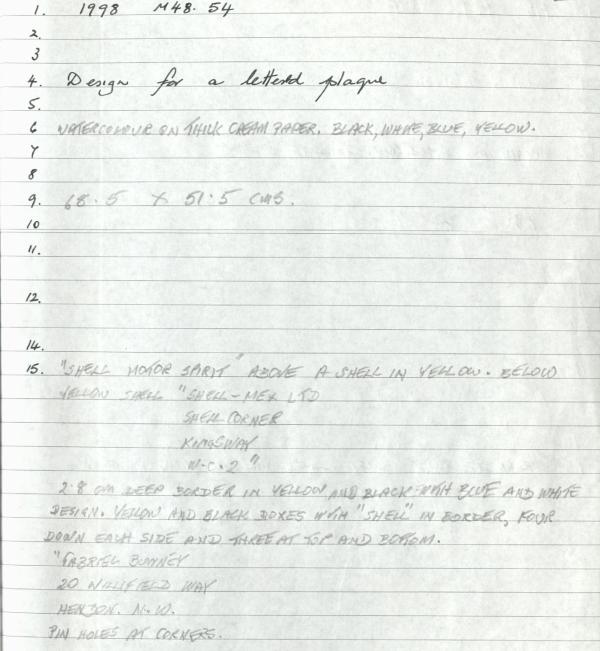 1. 1998 M48. 54
2.
3
4. Design for a lettered plaque
5.
6 WATERCOLOUR ON THICK CREAM PAPER. BLACK, WHITE, BLUE, YELLOW.
7
8
9. 68.5 X 51.5 cms.
10
11.
12.
14.
15. "SHELL MOTOR SPIRIT" ABOVE A SHELL IN YELLOW. BELOW
YELLOW SHELL "SHELL-MEX LTD
SHELL CORNER
KINGSWAY
W.C.2"
2.8 cm DEEP BORDER IN YELLOW AND BLACK WITH BLUE AND WHITE
DESIGN. YELLOW AND BLACK BOXES WITH "SHELL" IN BORDER, FOUR
DOWN EACH SIDE AND THREE AT TOP AND BOTTOM.
20 WAY
HENDON. N.W.
PIN HOLES AT CORNERS.